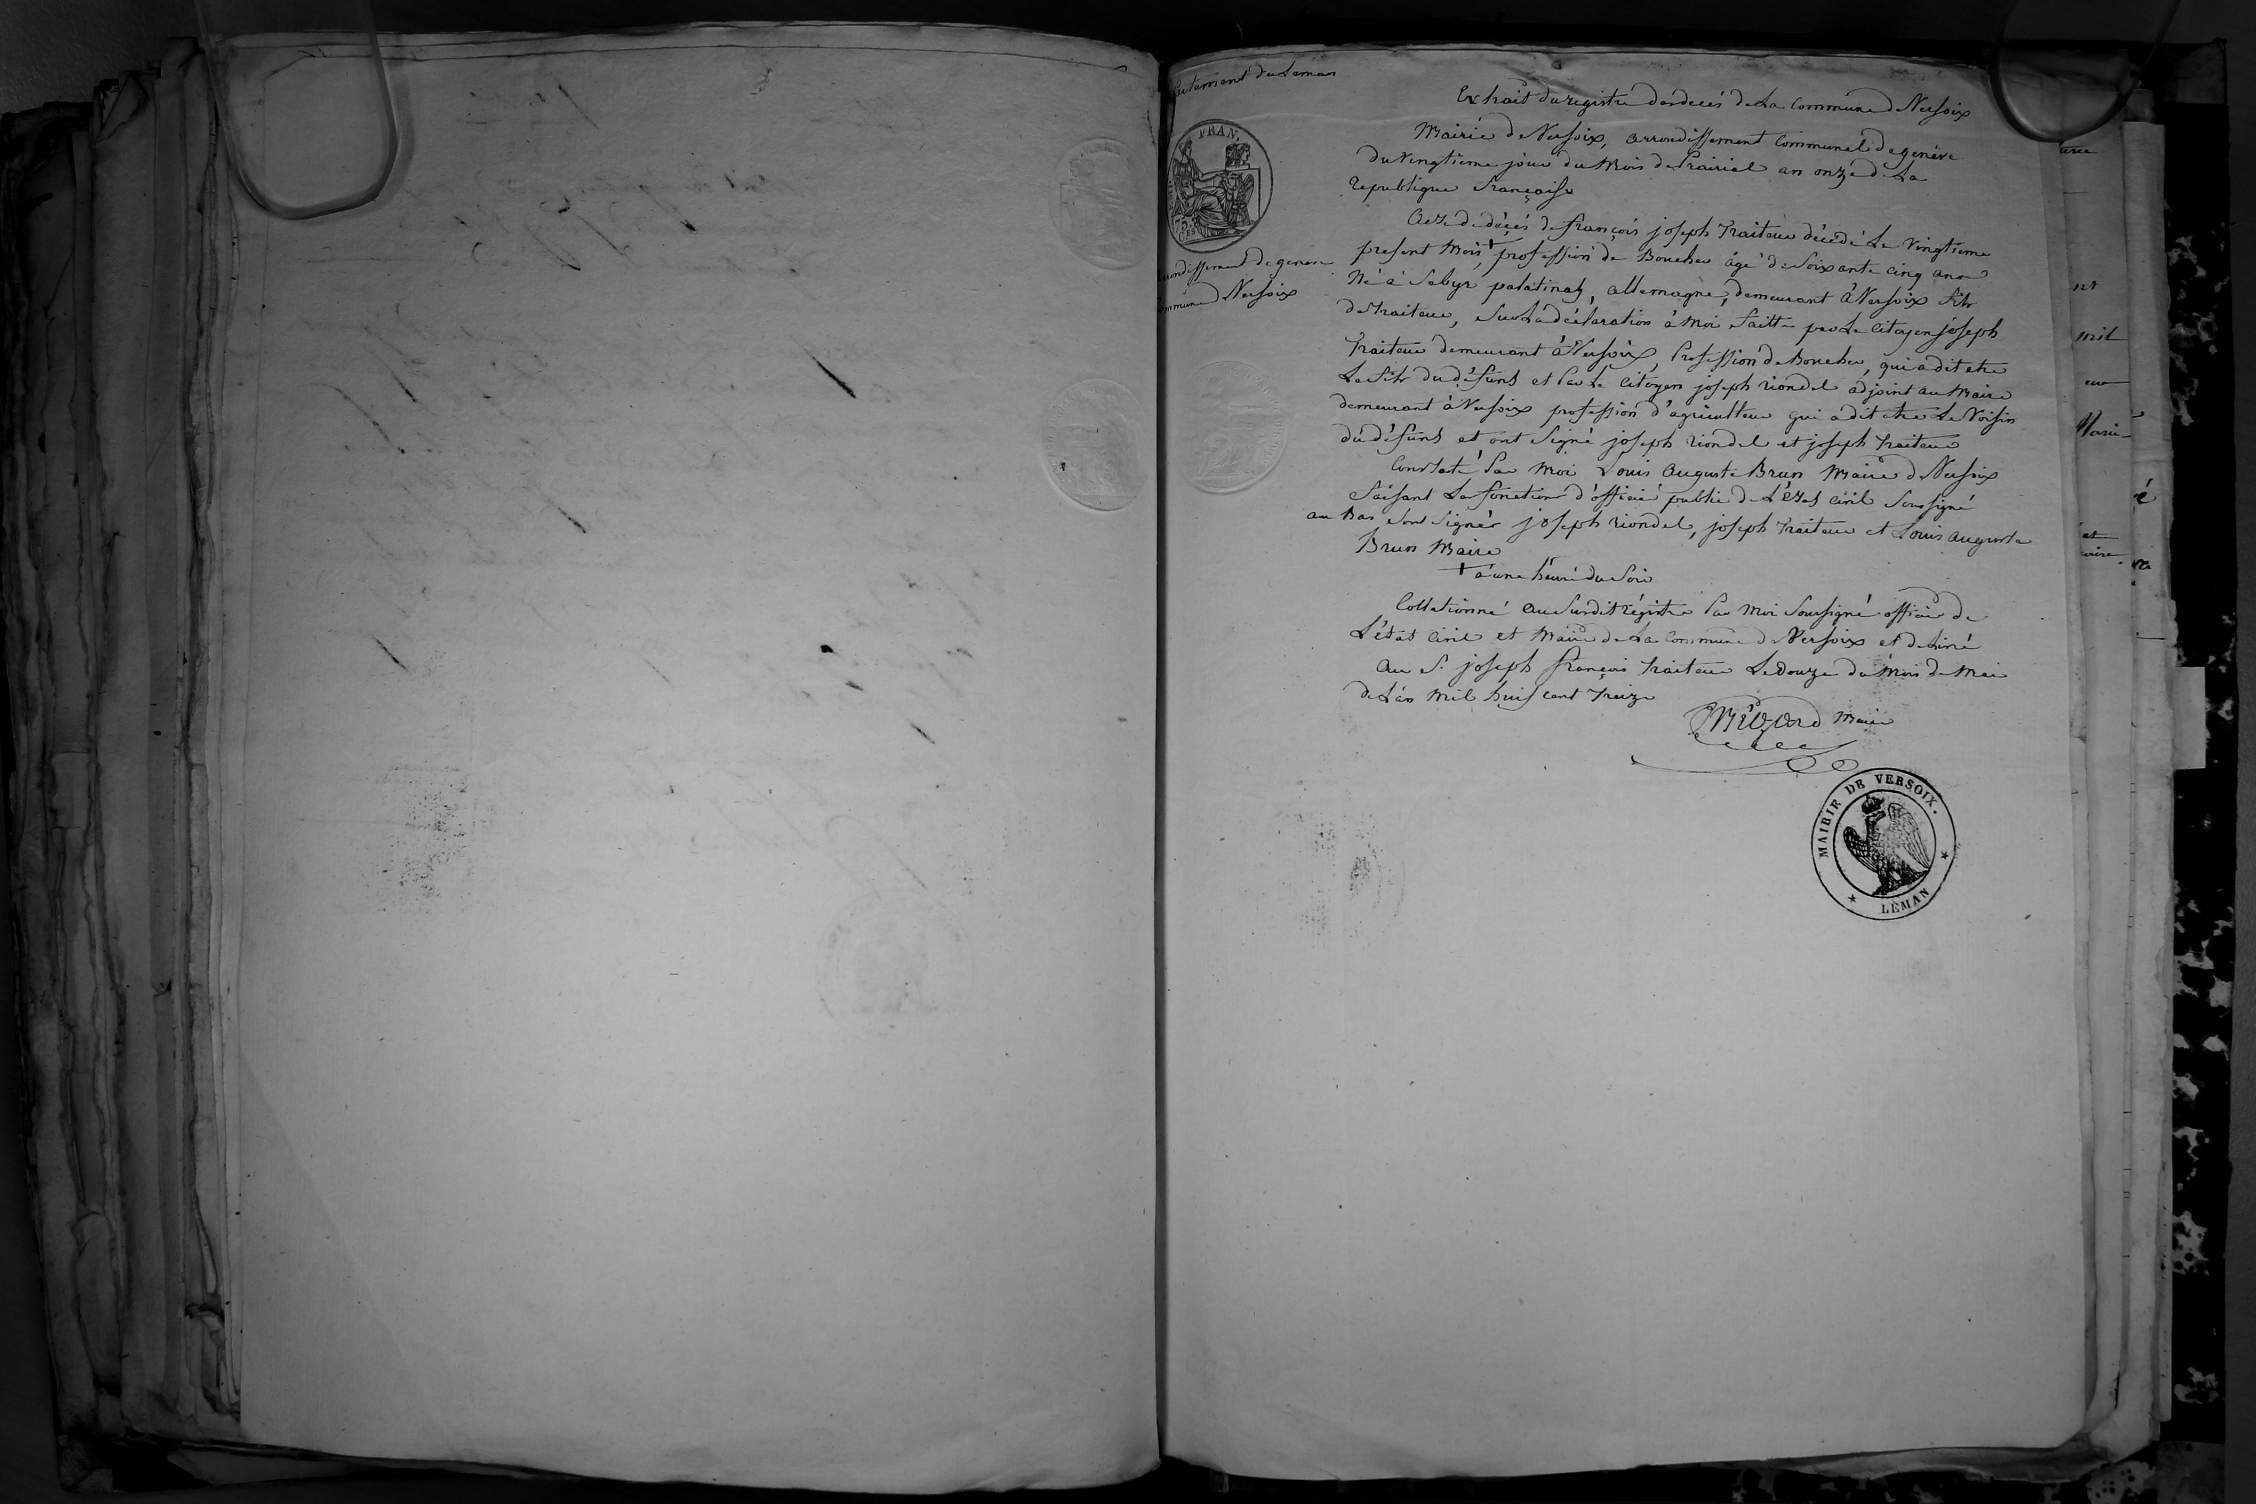 du Leman
Extrait du registre des decés de La Commune de Versoix
FRAN.
Mairie de Versoix, arrondissement Communal de genève
du Vingtieme jour du Mois de Prairial an onze de La
republique française
75
Acte de décés de françois joseph Traiteur décédé Le Vingtieme
present Mois + profession de Boucher âgé de soixante cinq ans
arrondissement de geneve
Commune de Versoix
Né à palatinat, allemagne, demeurant à Versoix fils
de Traiteur, sur La déclaration à moi faitte par Le Citoyen joseph
Traiteur demeurant à Versoix, Profession de Boucher, qui a dit etre
Le fils du défunt et Par Le Citoyen joseph riondel adjoint au Maire
demeurant à Versoix profession d'agriculteur qui a dit etre Le Voisin
du défunt et ont signé joseph riondel et joseph Traiteur
Constaté Par Moi Louis Auguste Brun Maire de Versoix
faisant Les fonctions d'officier public de L'état Civil soussigné
au Bas sont signés joseph riondel, joseph Traiteur et Louis auguste
Brun Maire
+ à une heure du soir
Collationné au susdit régistre Par Moi soussigné officier de
L'état Civil et Maire de La Commune de Versoix et délivré
au S. joseph françois Traiteur Le Douze du Mois de Mai
de L'an Mil huit cent Treize
Maire
MAIRIE DE VERSOIX.
LÉMAN